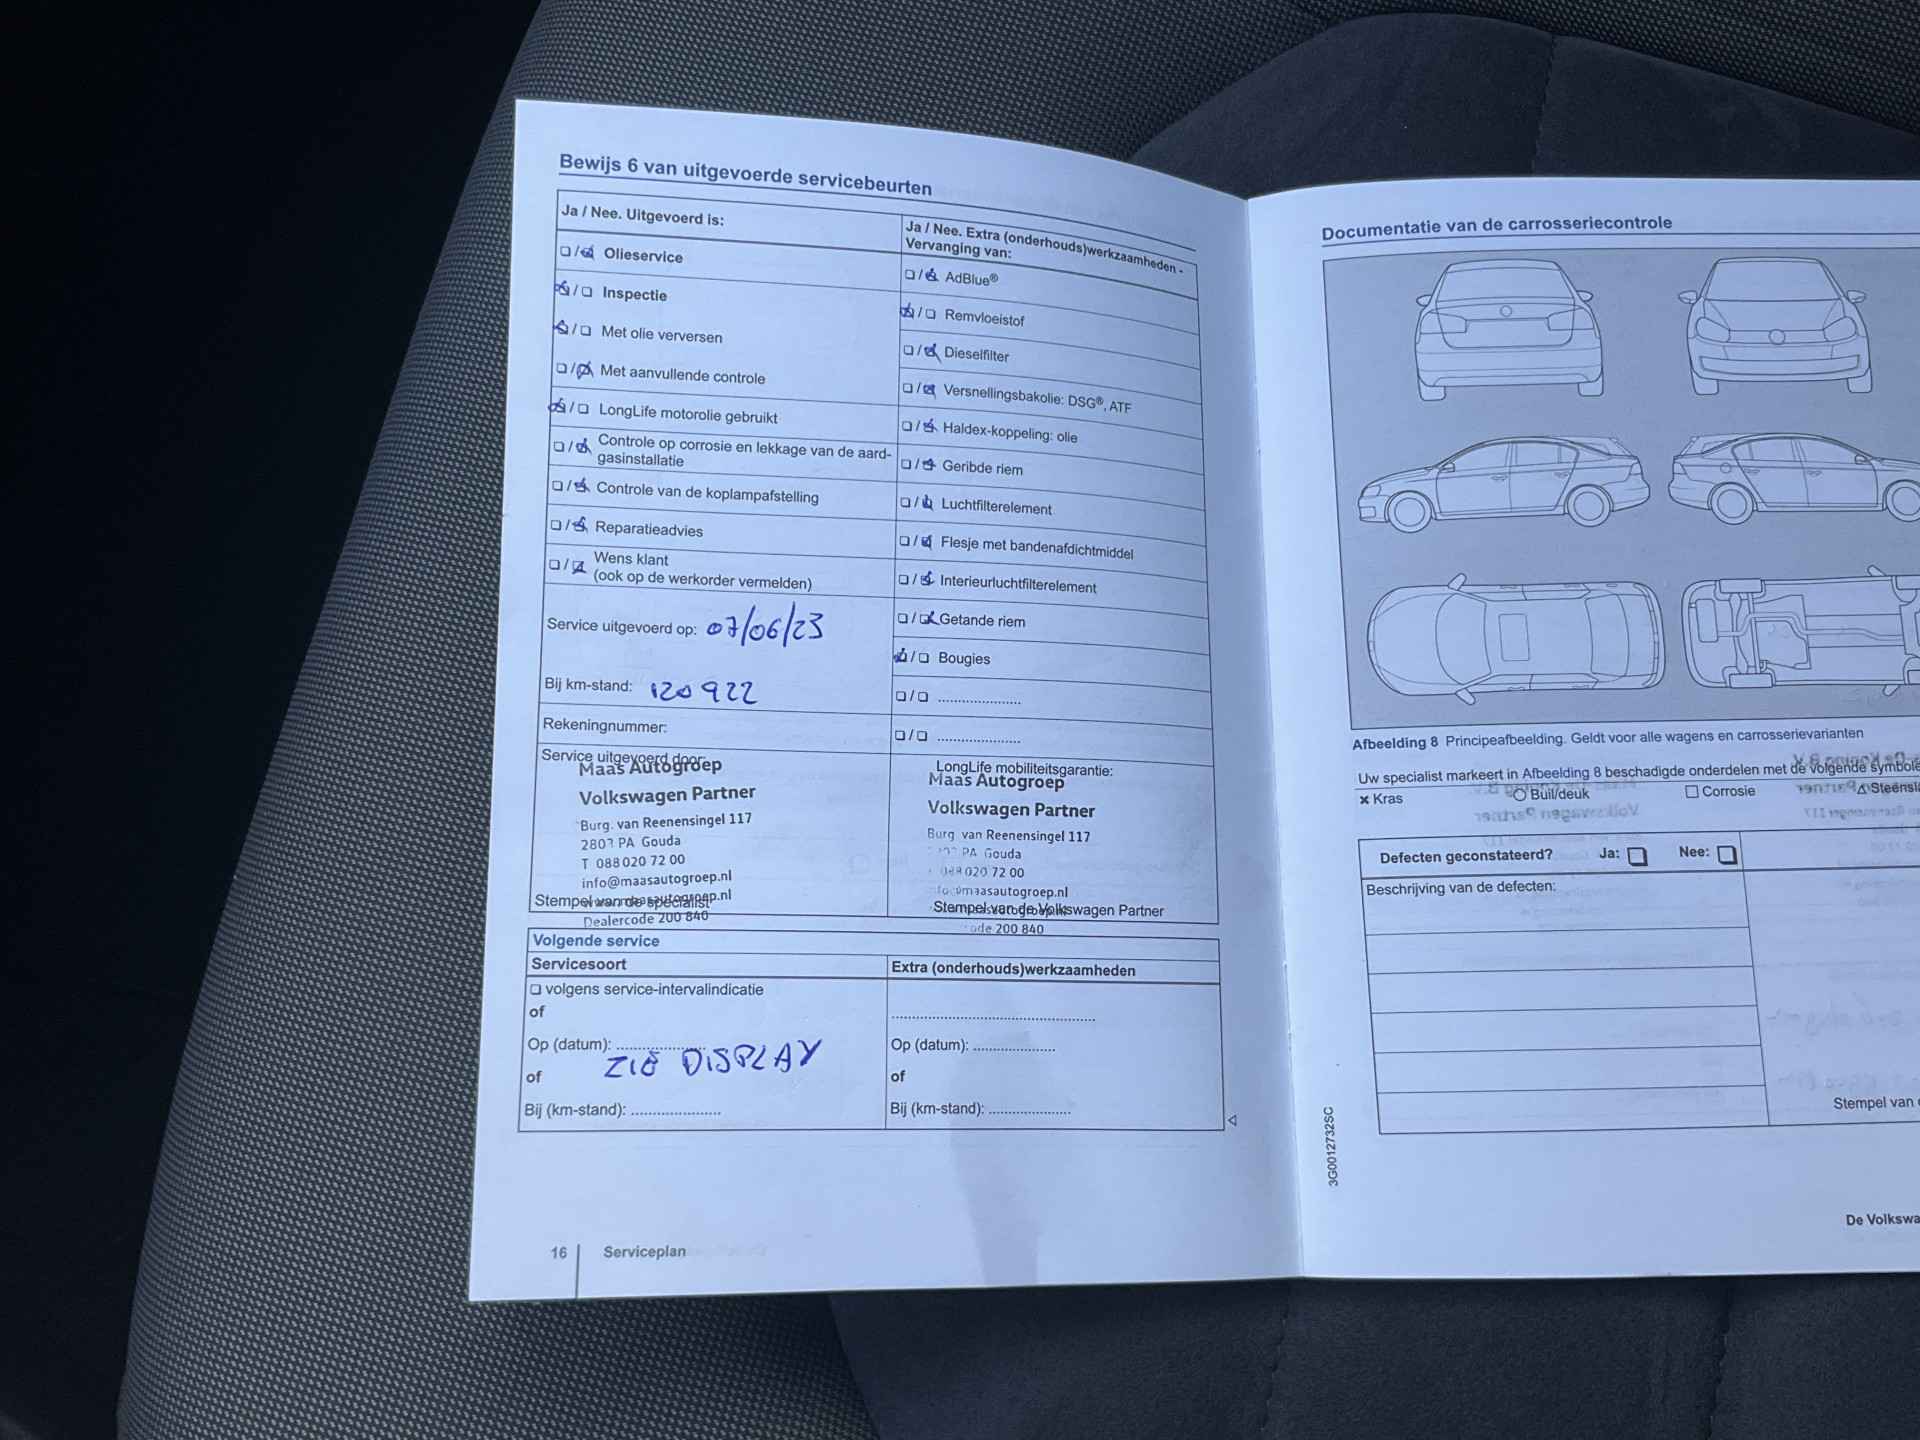 Bewijs 6 van uitgevoerde servicebeurten
Ja / Nee. Uitgevoerd is:
/ Olieservice
/ Inspectie
/ Met olie verversen
/ Met aanvullende controle
/ LongLife motorolie gebruikt
/ Controle op corrosie en lekkage van de aard-
gasinstallatie
/ Controle van de koplampafstelling
/ Reparatieadvies
/ Wens klant
(ook op de werkorder vermelden)
Service uitgevoerd op: 07/06/23
Bij km-stand: 120 922
Rekeningnummer:
Service uitgevoerd door:
Maas Autogroep
Volkswagen Partner
Burg. van Reenensingel 117
2803 PA Gouda
T 088 020 72 00
info@maasautogroep.nl
www.maasautogroep.nl
Stempel van de specialist
Dealercode 200 840
Ja / Nee. Extra (onderhouds)werkzaamheden -
Vervanging van:
/ AdBlue®
/ Remvloeistof
/ Dieselfilter
/ Versnellingsbakolie: DSG®, ATF
/ Haldex-koppeling: olie
/ Geribde riem
/ Luchtfilterelement
/ Flesje met bandenafdichtmiddel
/ Interieurluchtfilterelement
/ Getande riem
/ Bougies
/ .....................
/ .....................
LongLife mobiliteitsgarantie:
Maas Autogroep
Volkswagen Partner
Burg. van Reenensingel 117
PA Gouda
088 020 72 00
maasautogroep.nl
Stempel van de Volkswagen Partner
200 840
Volgende service
Servicesoort
volgens service-intervalindicatie
of
Op (datum): ......................
ZIE DISPLAY
of
Bij (km-stand): ......................
Extra (onderhouds)werkzaamheden
....................................................
Op (datum): ....................
of
Bij (km-stand): ....................
16 Serviceplan
Documentatie van de carrosseriecontrole
Afbeelding 8 Principeafbeelding. Geldt voor alle wagens en carrosserievarianten
Uw specialist markeert in Afbeelding 8 beschadigde onderdelen met de volgende symbole
Kras Buil/deuk Corrosie Steensla
Defecten geconstateerd? Ja: Nee:
Beschrijving van de defecten:
Stempel van
3G0012732SC
De Volkswa